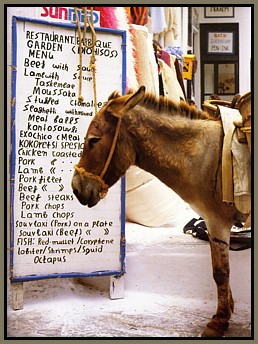 SUNFUN
RESTAURANT BARBEQUE
GARDEN (XNOHSOS)
MENU
Beef with sauce
Lamb with sauce
Tasmoussaka
Moussaka
Stuffed
Spaghetti with
Meat Balls
Kontosouvli
Exochico (Meal
KOKORETSI SPECIAL
Chicken Roasted
Pork "
Lamb "
Pork fillet
Beef « »
Beef steaks
Pork chops
Lamb chops
Souvlaxi (Pork) on a plate
Souvlaxi (Beef) « »
FISH: Red-mullet / Coryphene
lobster/Shrimps/Squid
Octapus